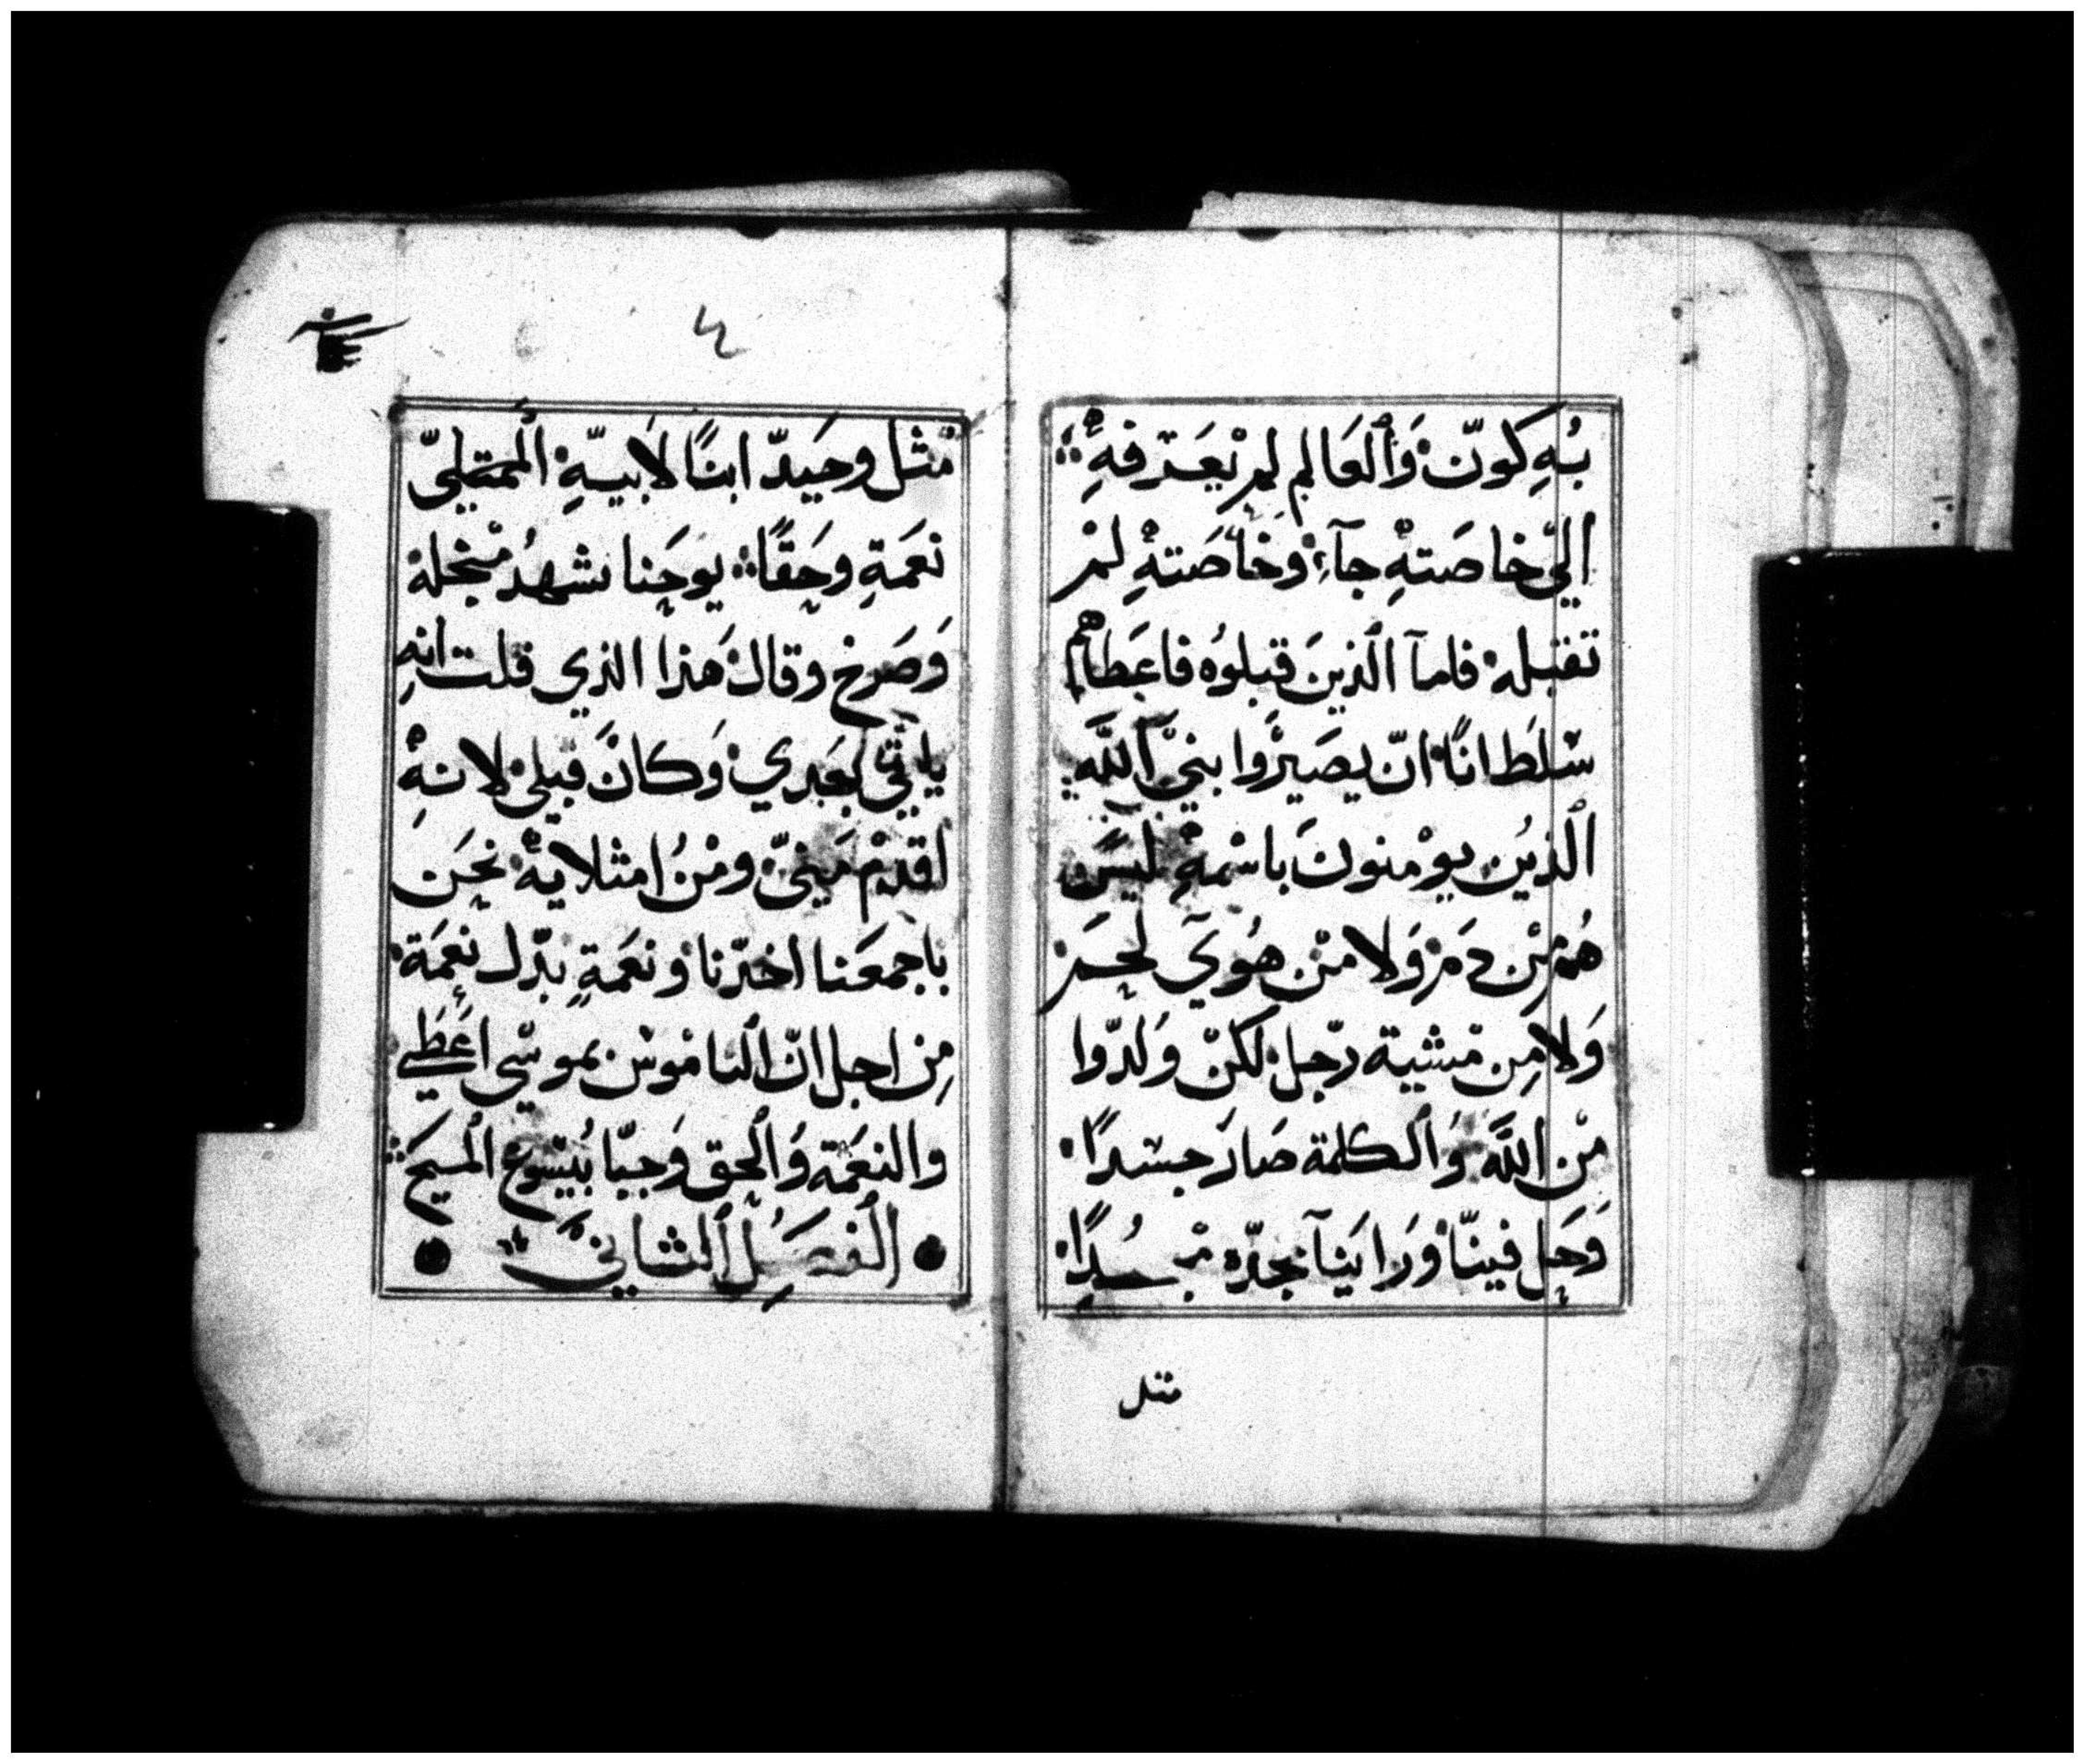 بُهِ كَونّ وَٱلعَالم لمْ يَعَرفهِ
الىّ خاصَتهِ جآء وخاصَتهِ لمْ
تقبله فامآ الذينَ قبلوُه فاعِطاهم
سْلطَانًا انّ يصَيرَّوا بنيّ اللَّه
الذيُن يوْمنونَ باسْمهِ ليسَ
هُم مْن دَم وَلا مْن هُويَ لحَم
وَلا مِن مْشية رّجل لكنّ وَلدّوا
مْن اللَّه وَالكلمة صَارَ جسْدًا
وَحَل فينّا وَرايَنآ مجدّه
مثل
٤
مْثل وحَيدّ ابنًا لاَبيهِ الممتلىّ
نعَمَةٍ وحَقًا يوحَنا يشهدُ مْنجله
وَصَرخ وقالَ هَذا الذي قلت انهِ
ياتّي بَعَدي وَكانَ قبلى لانهِ
اقدمْ مَنيّ ومْنُ امتلايهْ نحَن
باجمعَنا اخذّنا ونعَمَةٍ بدّل نعَمَة
مِن اجل انّ الناموْس بموسْي اعَطَي
والنعَمَة وَالحق وَجبّا بُيسْوع المسيَح
الفصَل الثاني